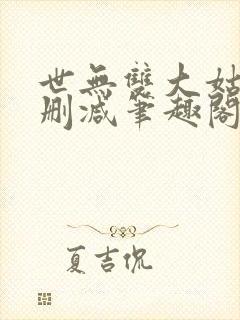 世無雙大姑
刪減筆趣閣
夏吉侃